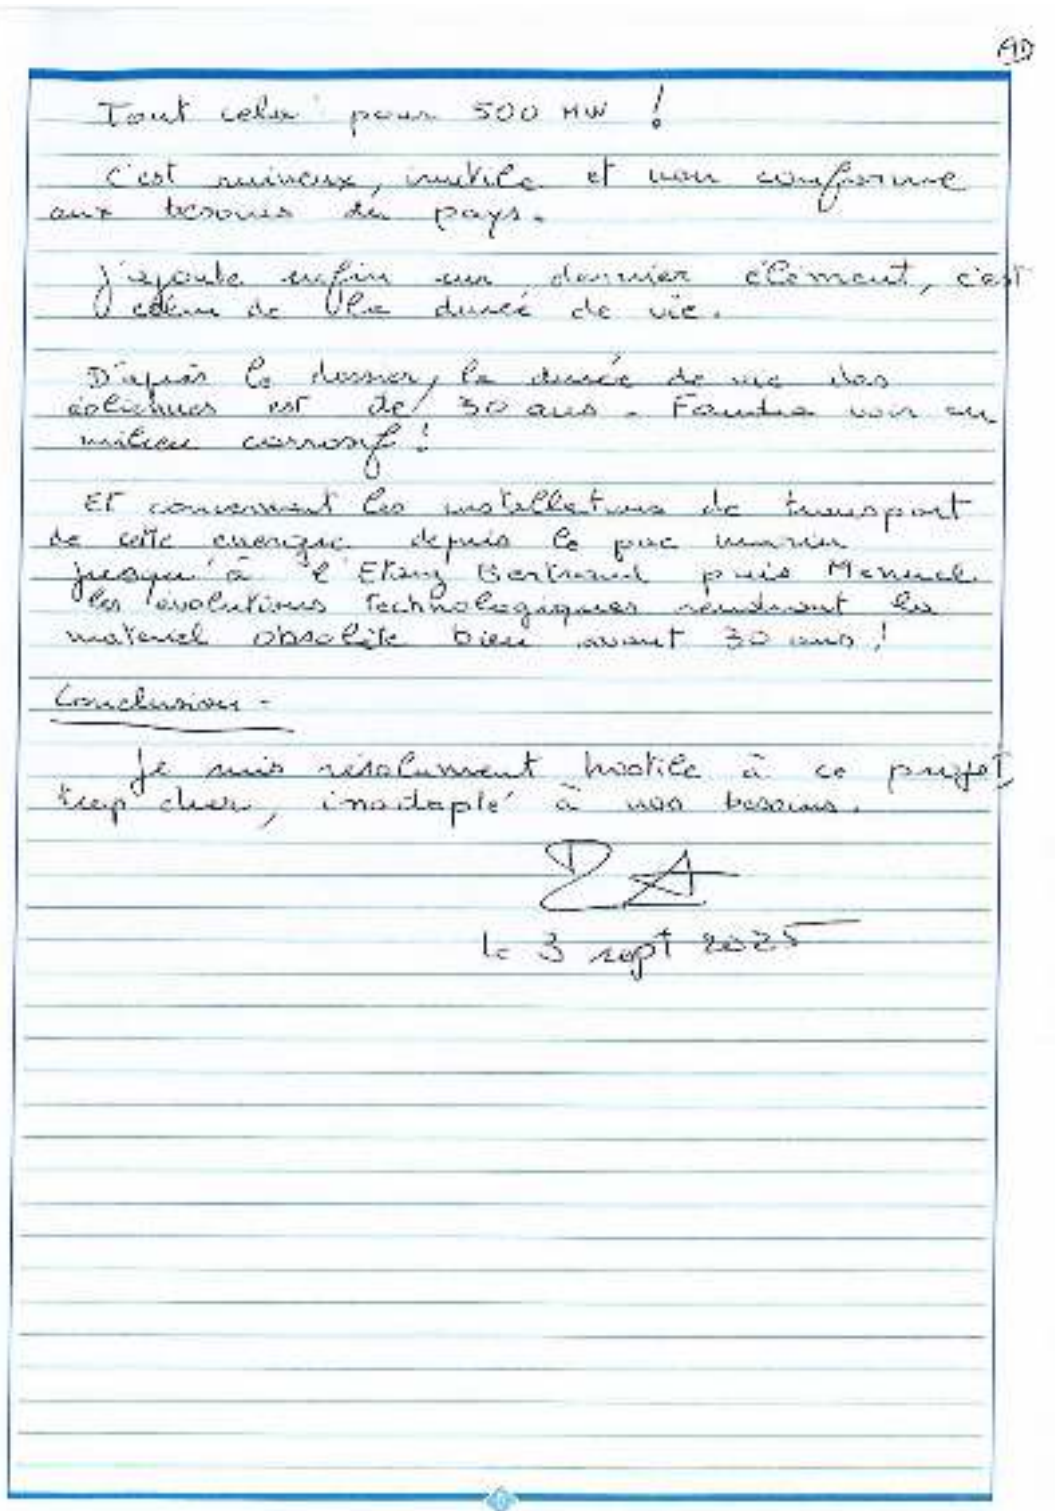 AD
Tout cela pour 500 MW !
C'est ruineux, inutile et non conforme
aux besoins du pays.
J'ajoute enfin un dernier élément, c'est
celui de la durée de vie.
D'après le dossier, la durée de vie des
éoliennes est de 30 ans. Faudra voir en
milieu corrosif !
Et concernant les installations de transport
de cette énergie depuis le parc marin
jusqu'à l'Etang Bertrand puis Menuel
les évolutions technologiques rendront les
matériel obsolète bien avant 30 ans !
Conclusion -
Je suis résolument hostile à ce projet,
trop cher, inadapté à nos besoins.
le 3 sept 2025